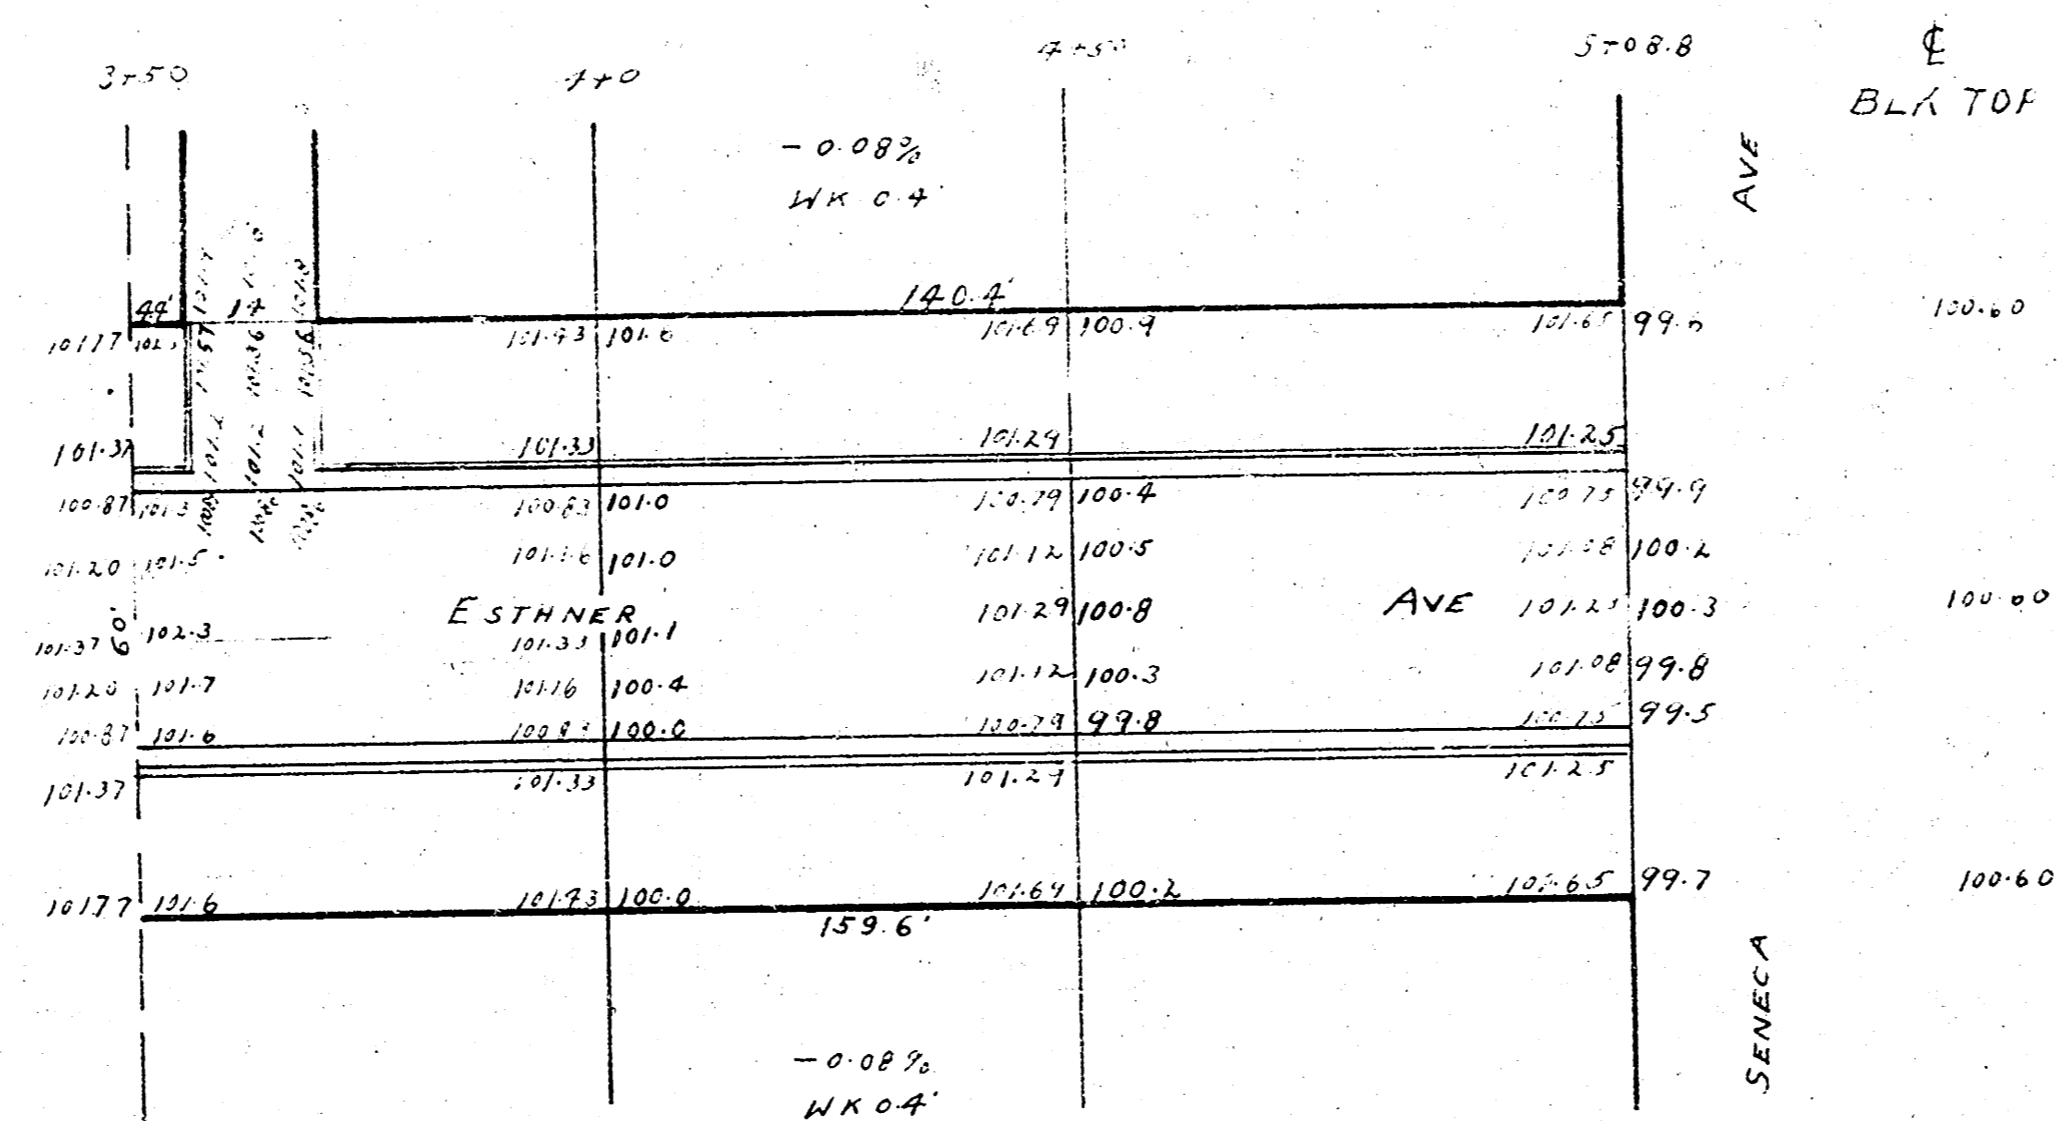 3+50 4+0 4+50 5+08.8 ℄
BLK TOP
-0.08%
WK 0.4'
AVE
44' 14 140.4'
101.77 101.93 101.6 101.69 100.9 101.65 99.6 100.60
101.37 101.33 101.29 101.25
100.87 101.3 100.83 101.0 100.79 100.4 100.75 99.9
101.20 101.5 101.16 101.0 101.12 100.5 101.08 100.2
ESTHNER AVE
60'
101.37 102.3 101.33 101.1 101.29 100.8 101.25 100.3 100.60
101.20 101.7 101.16 100.4 101.12 100.3 101.08 99.8
100.87 101.6 100.83 100.0 100.79 99.8 100.75 99.5
101.37 101.33 101.29 101.25
101.77 101.6 101.73 100.0 101.69 100.2 101.65 99.7 100.60
159.6'
SENECA
-0.08%
WK 0.4'